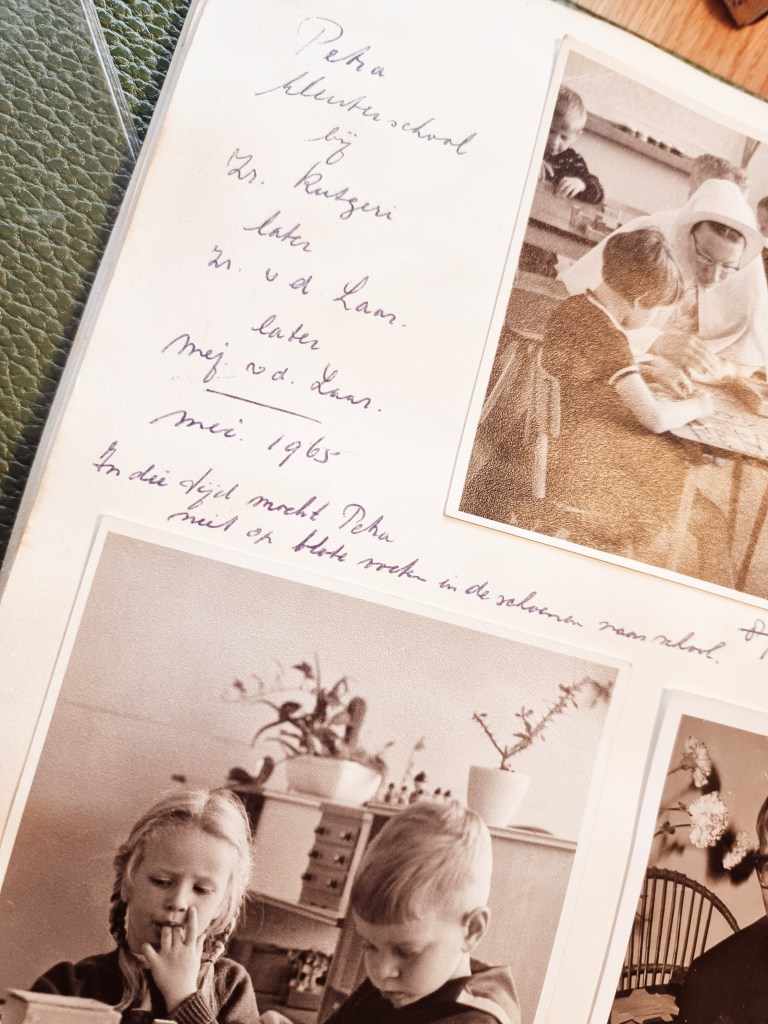 Petra
kleuterschool
bij
Zr. Rutgeri
later
Zr. v d. Laar.
later
mej. v.d. Laar.
mei. 1965
In die tijd mocht Petra
niet op blote voeten in de schoenen naar school.